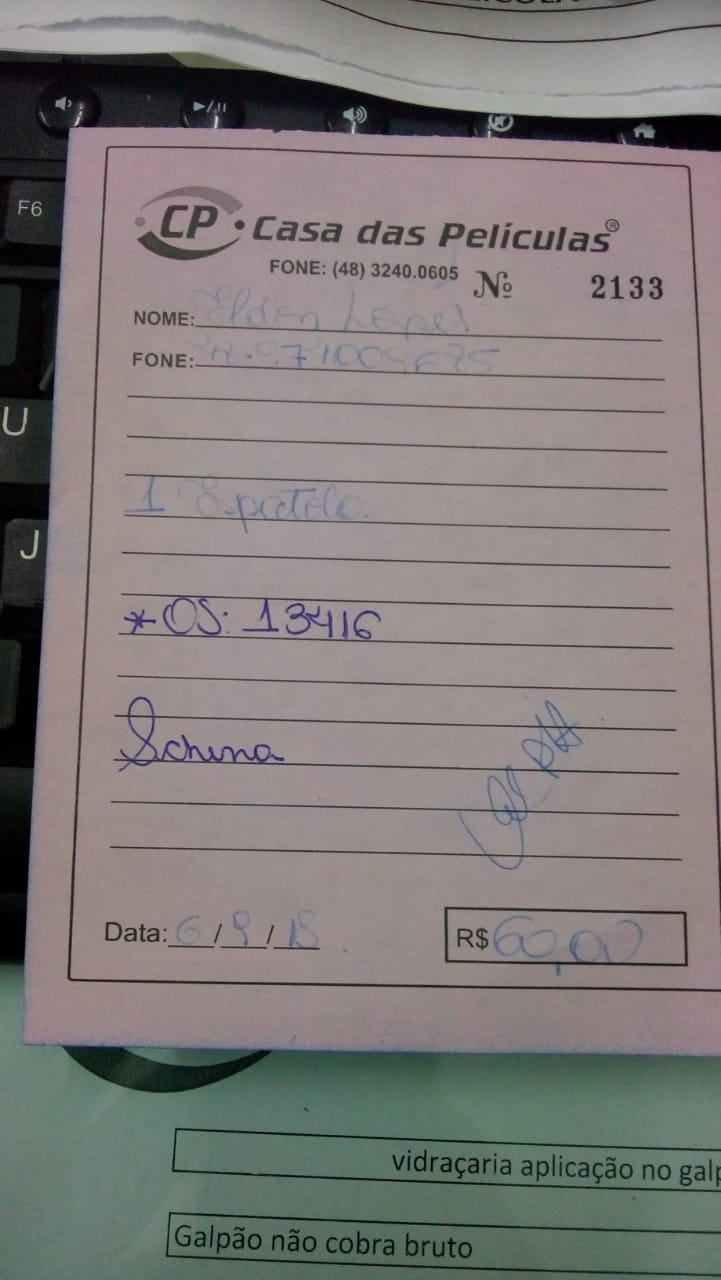 F6
U
J
CP Casa das Películas®
FONE: (48) 3240.0605 Nº 2133
NOME:
FONE:
1 Espatula
*OS: 13416
Schena
Data: 6/9/
R$ 60,00
vidraçaria aplicação no galp
Galpão não cobra bruto